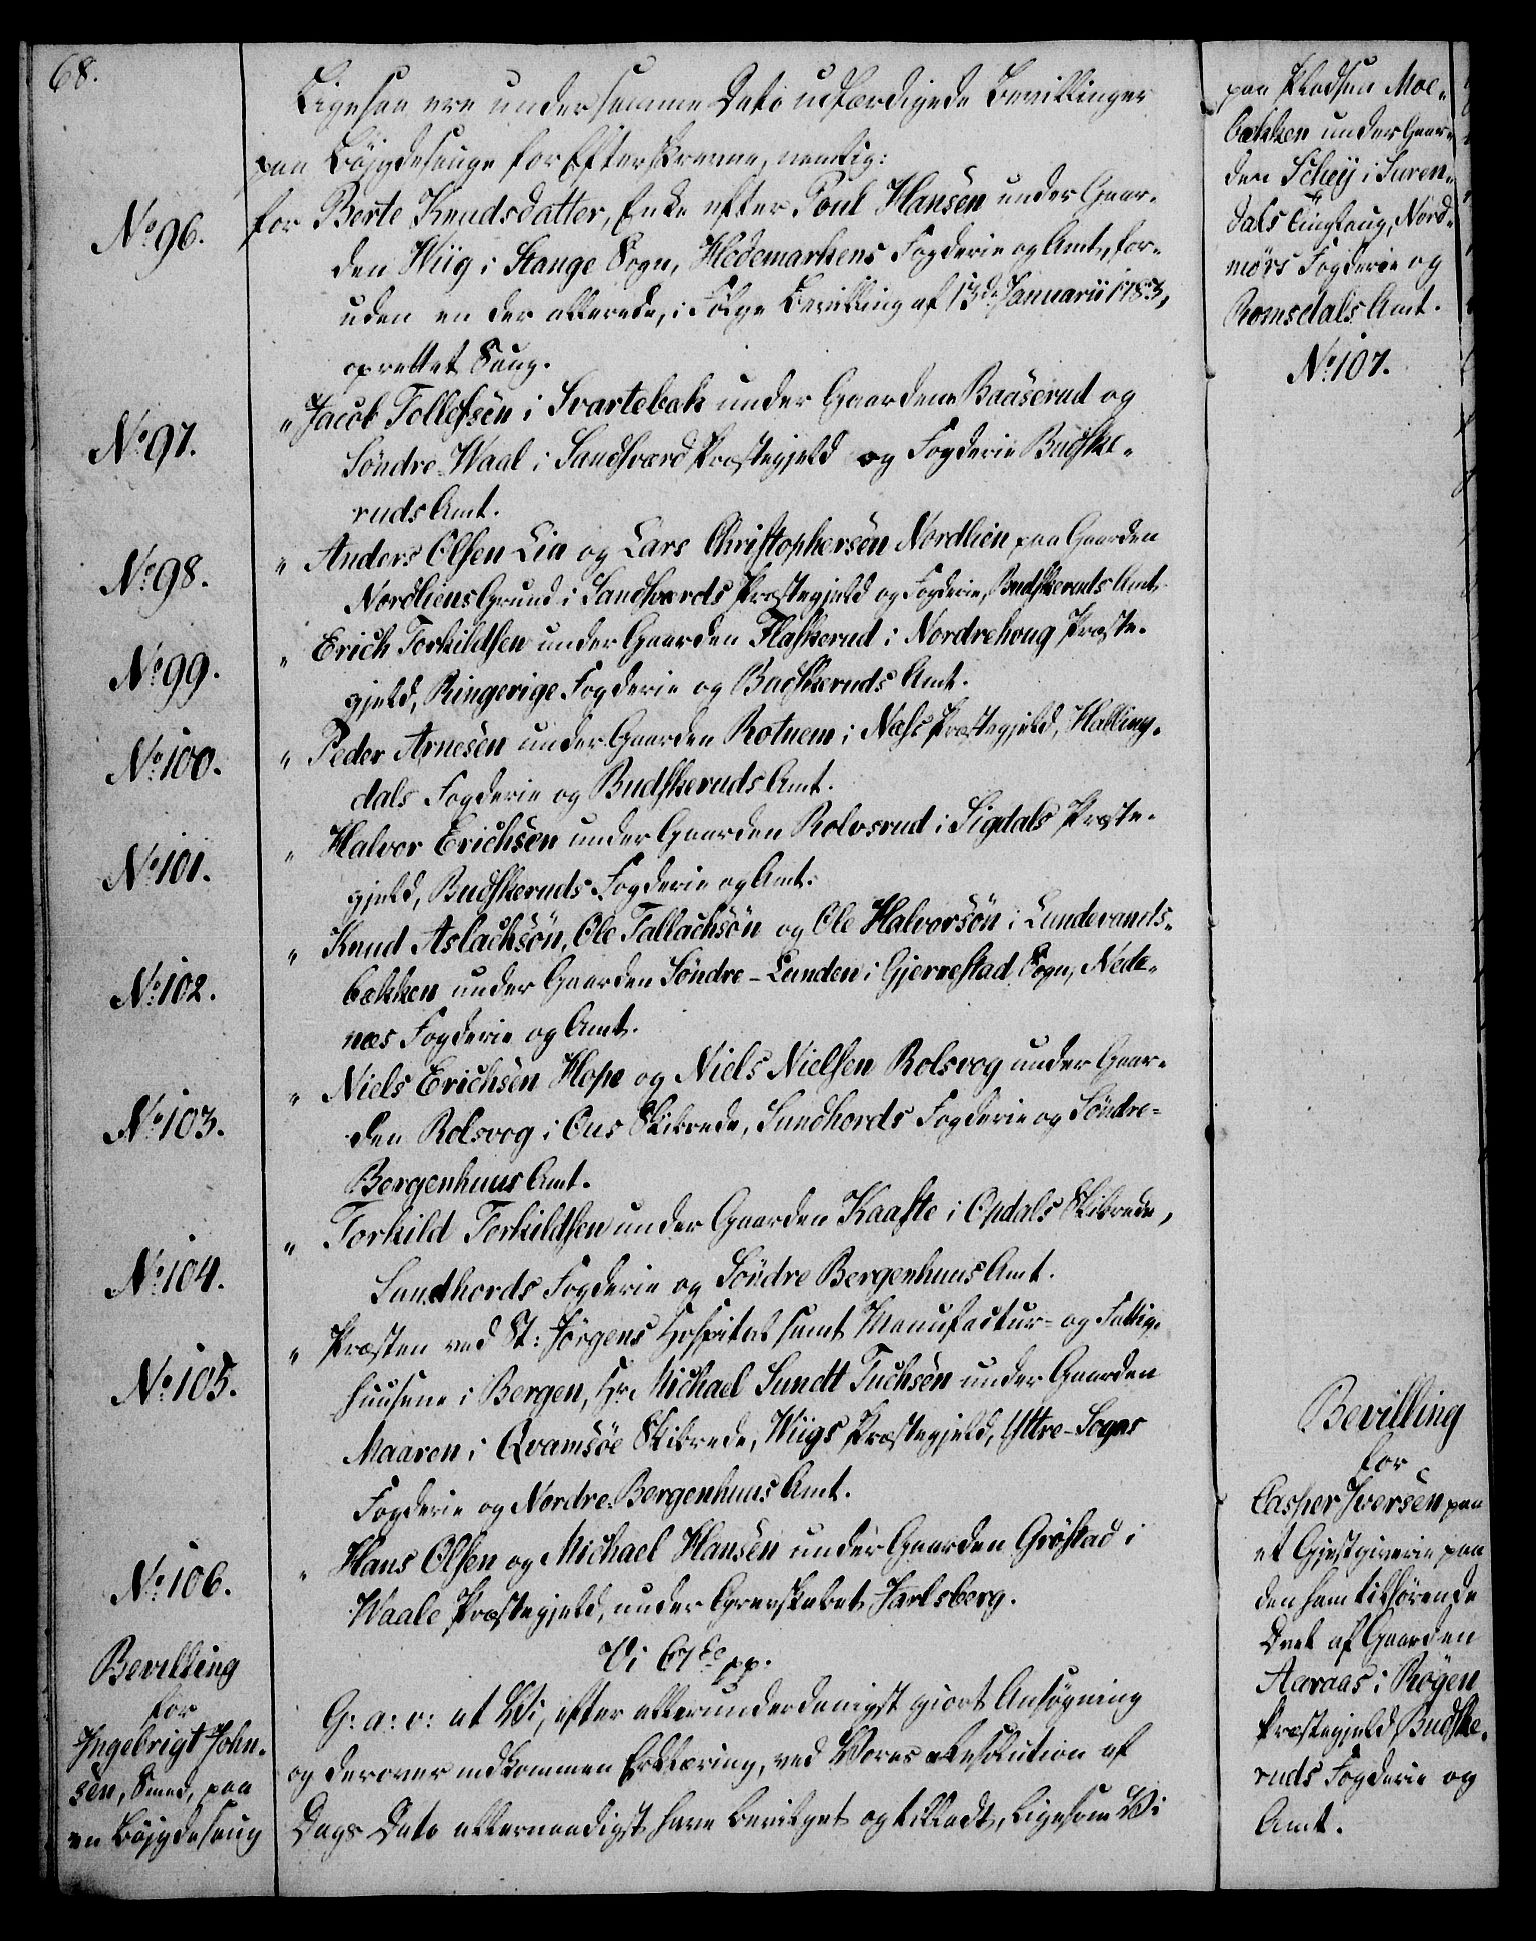 68.
Ligesaa ere under samme Dato udfærdigede Bevillinger
paa Böjgdesauge for Efterskrevne, nemlig:
No 96.
for Berte Knudsdatter, Enke efter Poul Hansen under Gaar-
den Wiig i Stange Sogn, Hedemarkens Fogderie og Amt, for-
uden en der allerede, i Følge Bevilling af 13de Januarii 1783,
oprettet Saug.
No 97.
" Jacob Tollefsen i Svartebak under Gaardene Baaserud og
Söndre Waal i Sandsværd Præstegjeld og Fogderie Budske-
ruds Amt.
No 98.
" Anders Olsen Lia og Lars Christophersen Nordlien paa Gaarden
Nordliens Grund i Sandsværds Præstegjeld og Fogderie, Budskeruds Amt
No 99.
" Erich Torkildsen under Gaarden Flaskerud i Nordrehoug Præste-
gjeld, Ringerige Fogderie og Budskeruds Amt.
No 100.
" Peder Arnesen under Gaarden Rotnem i Næss Præstegjeld, Halling-
dals Fogderie og Budskeruds Amt.
No 101.
" Halvor Erichsen under Gaarden Rolvsrud i Sigdals Præste-
gjeld, Budskeruds Fogderie og Amt.
No 102.
" Knud Aslachsön, Ole Tallachsön og Ole Halvorsön i Lundevands-
bækken under Gaarden Söndre-Lunden i Gjerrestad Sogn, Nede-
næs Fogderie og Amt.
No 103.
" Niels Erichsen Hope og Niels Nielsen Rolsvog under Gaar-
den Rolsvog i Ous Skibrede, Sundhords Fogderie og Söndre-
Bergenhuus Amt.
No 104.
" Torkild Torkildsen under Gaarden Kaaste i Opdals Skibrede,
Sundhords Fogderie og Söndre Bergenhuus Amt.
No 105.
" Præsten ved St: Jörgens Hospital samt Manufactur- og Fattig-
huusene i Bergen, Hr. Michael Sundt Tuchsen under Gaarden
Maaren i Qvamsöe Skibrede, Wiigs Præstegjeld, Yttre-Sogns
Fogderie og Nordre Bergenhuus Amt.
No 106.
" Hans Olsen og Michael Hansen under Gaarden Gröstad i
Waale Præstegjeld, under Grevskabet Jarlsberg.
Bevilling
for
Ingebrigt John-
sen, Smed, paa
en Böjgdesaug
Vi C7de pp.
G: a: v: at Vi, efter allerunderdanigst giort Ansøgning
og derover indkommen Erklæring, ved Vores Resolution af
Dags Dato allernaadigst have bevilget og tilladt, ligesom Vi
paa Pladsen Moe-
bækken under Gaar-
den Schey i Suren-
dals Tinglaug, Nord-
mörs Fogderie og
Romsdals Amt.
No 107.
Bevilling
for
Casper Iversen paa
et Gjestgiverie paa
den ham tilhørende
Deel af Gaarden
Aaraas i Rögen
Præstegjeld Budske-
ruds Fogderie og
Amt.